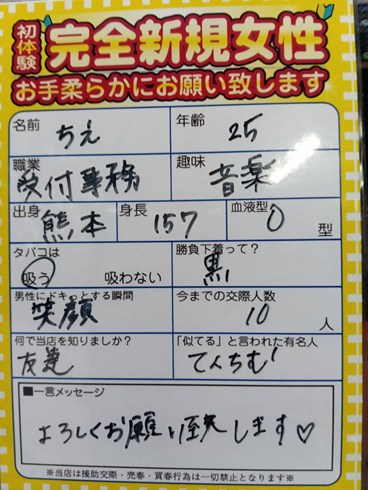 初体験
完全新規女性
お手柔らかにお願い致します
名前 ちえ 年齢 25
職業 受付事務 趣味 音楽
出身 熊本 身長 157 血液型 O 型
タバコは 吸う 吸わない 勝負下着って? 黒
男性にドキッとする瞬間 笑顔 今までの交際人数 10 人
何で当店を知りましたか? 友達 「似てる」と言われた有名人 てんちむ!
■一言メッセージ
よろしくお願い致します♡
※当店は援助交際・売春・買春行為は一切禁止となります※